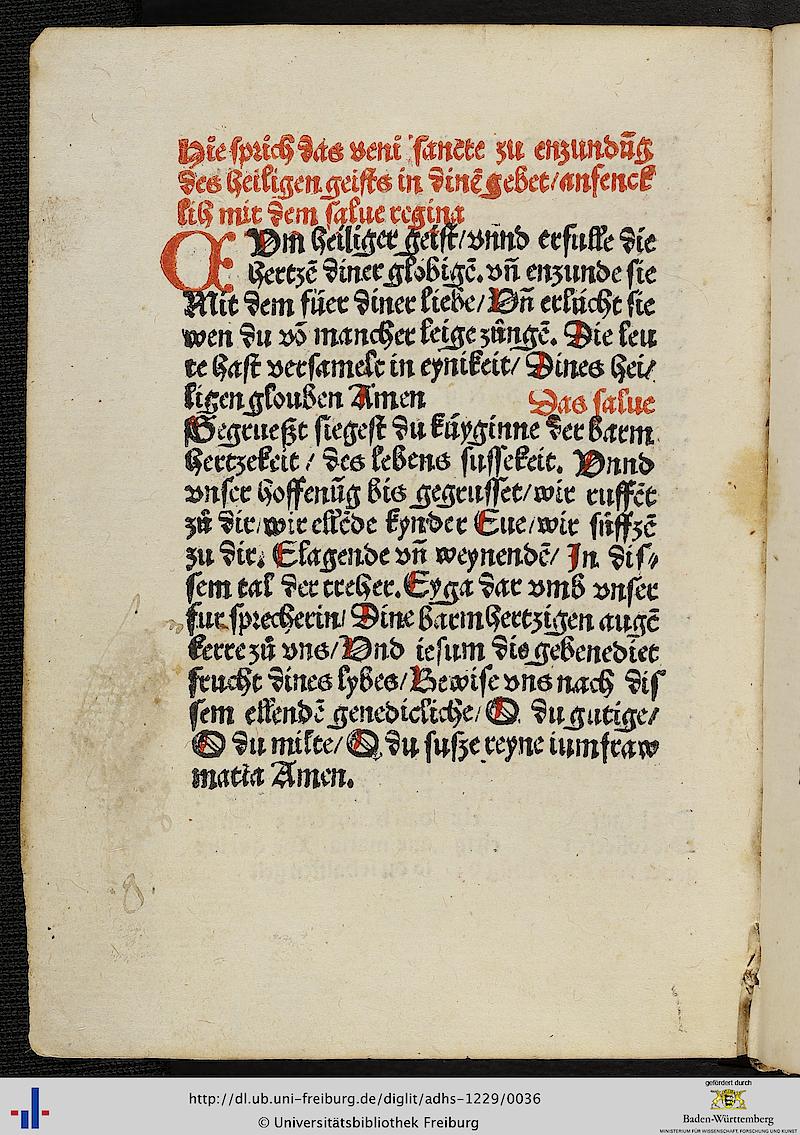 Hie sprich das veni sancte zu enzundūg
des heiligen geists in dinē gebet/anfenck
lih mit dem salue regina
CVm heiliger geist/vnnd erfulle die
hertzē diner globigē. vn̄ enzunde sie
Mit dem füer diner liebe/Vn̄ erlücht sie
wen du vō mancher leige zůngē. Die leu
te hast versamelt in eynikeit/ Dines hei/
ligen glouben Amen Das salue
Gegrueßt siegest du küyginne der barm
hertzekeit/ des lebens sussekeit. Vnnd
vnser hoffenūg bis gegrusset/wir ruffēt
zů dir/wir ellēde kynder Eue/wir süffzē
zu dir. Clagende vn̄ weynendē/ In dis/
sem tal der treher. Eyga dar vmb vnser
fur sprecherin/ Dine barmhertzigen augē
kerre zů vns/Vnd iesum die gebenediet
frucht dines lybes/Bewise vns nach dis
sem ellendē genedicliche/ O du gutige/
O du milte/ O du susze reyne iumfraw
maria Amen.
8.
http://dl.ub.uni-freiburg.de/diglit/adhs-1229/0036
© Universitätsbibliothek Freiburg
gefördert durch
Baden-Württemberg
MINISTERIUM FÜR WISSENSCHAFT, FORSCHUNG UND KUNST